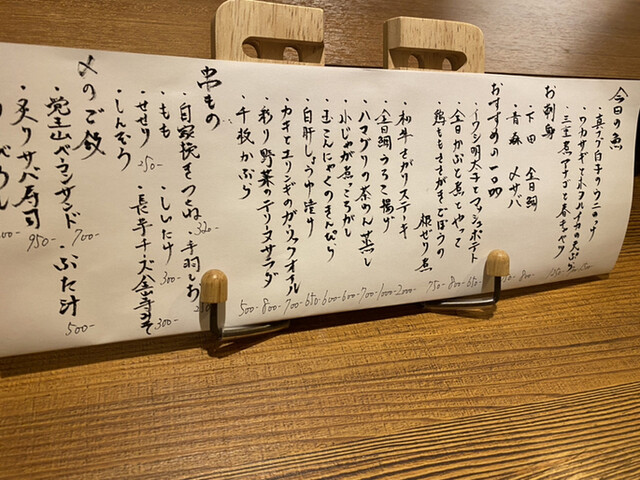 今日の魚
・真フグ白子のウニのっけ
・ワカサギとホタルイカの天ぷら
・三重煮アナゴと春キャベツ
お刺身
・下田 金目鯛
・青森 〆サバ
おすすめの一品
・イワシ明太子とマッシュポテト 650-
・金目かぶと煮とやって 800-
・鶏ももささがきごぼうの 根ぜり煮 750-
・和牛さがりステーキ 2000-
・金目鯛うろこ揚げ 1000-
・ハマグリの茶めん蒸し 700-
・小じゃが煮っころがし 600-
・玉こんにゃくのきんぴら 600-
・白肝しょうゆ漬り 650-
・カキとエリンギのガーリックオイル 700-
・彩り野菜のデリーヌサラダ 800-
・千枚かぶら 500-
串もの
・自家挽きつくね 320- ・手羽しお
・もも ・しいたけ 300- ・長芋チーズ金山寺みそ 300-
・せせり 250-
・しんぞう
〆のご飯
・覚王山ベーコンサンド 700- ・ぶた汁 500-
・炙りサバ寿司 950-